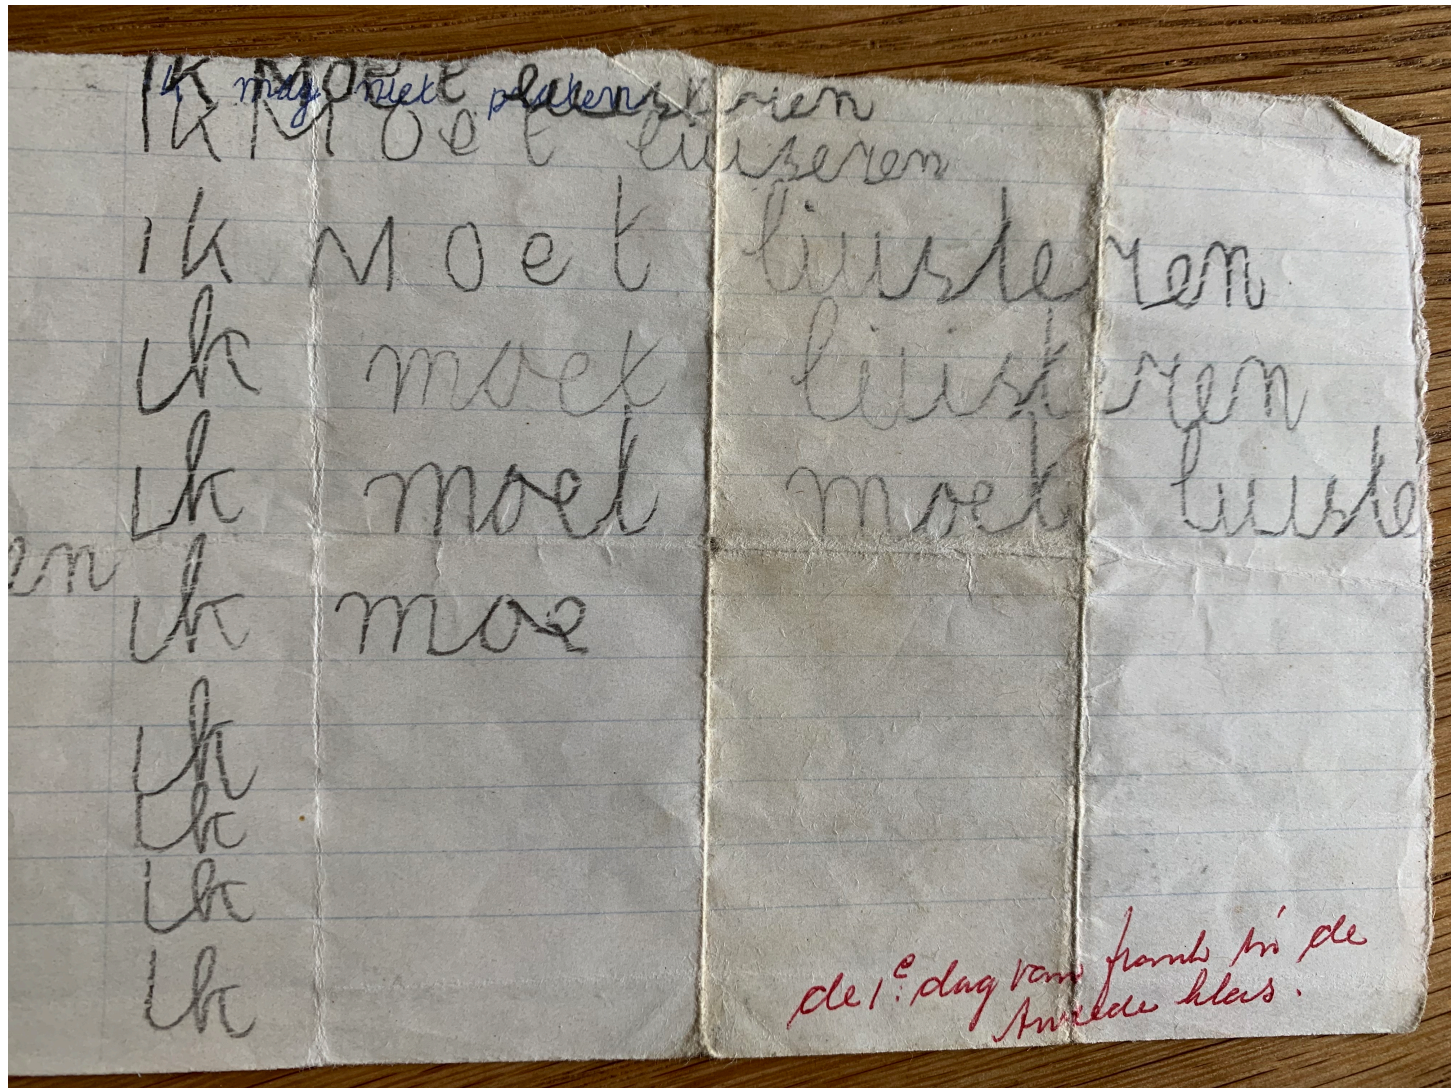 ik mag niet praten
ik Moet luisteren
ik Moet luiseren
ik Moet luisteren
ik moet luisteren
ik moet moet luiste
en
ik moe
ik
ik
ik
ik
de 1e. dag van frank in de
tweede klas.